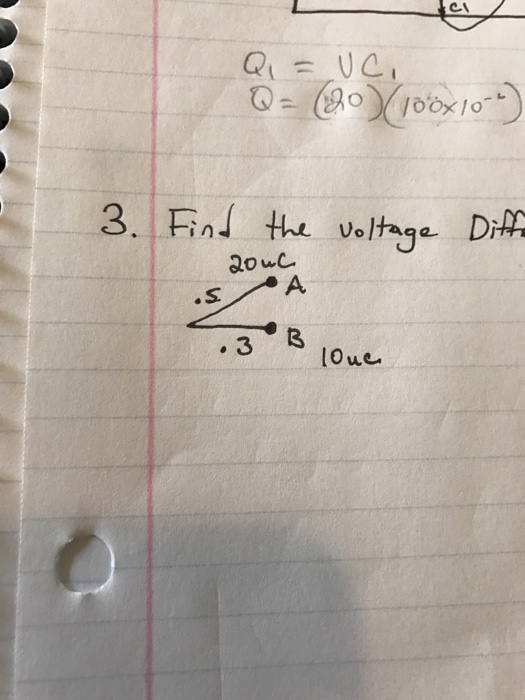 C1
Q₁ = VC₁
Q = (20)(100x10⁻⁶)
3. Find the voltage Diff
20uC
.5 A
.3 B
10uc